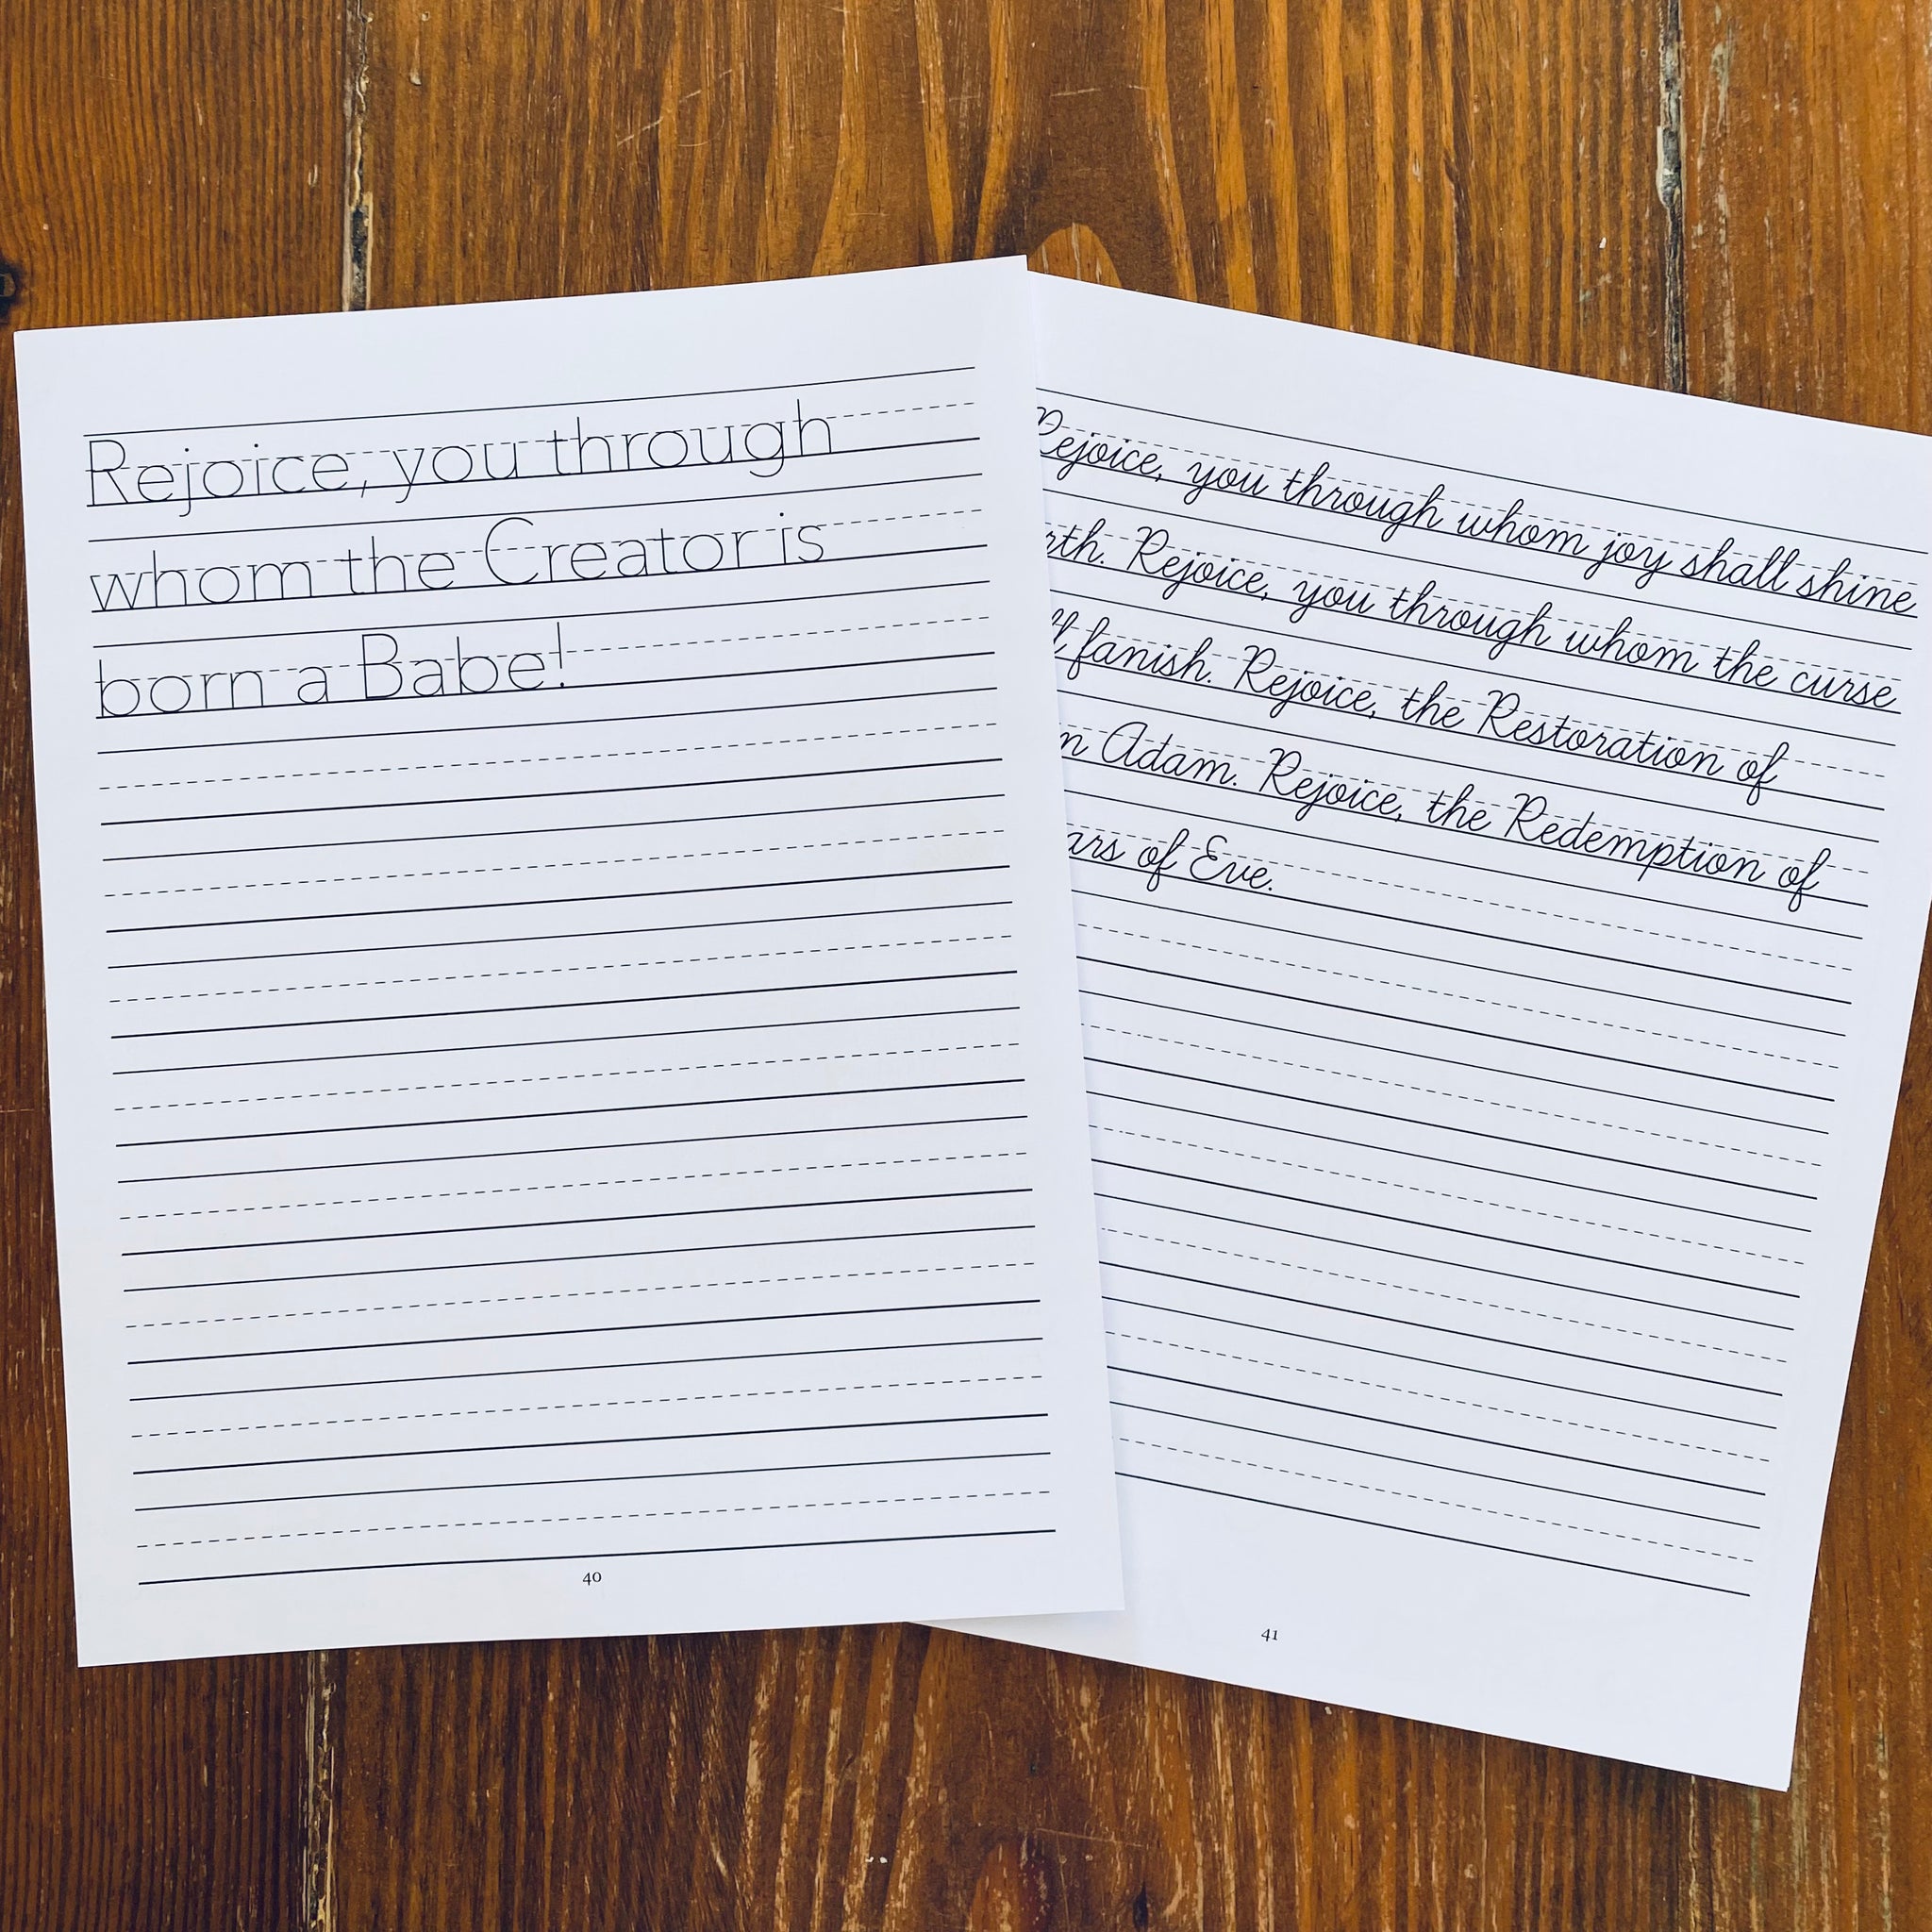 Rejoice, you through
whom the Creator is
born a Babe!
40
Rejoice, you through whom joy shall shine
rth. Rejoice, you through whom the curse
ll fanish. Rejoice, the Restoration of
n Adam. Rejoice, the Redemption of
ars of Eve.
41